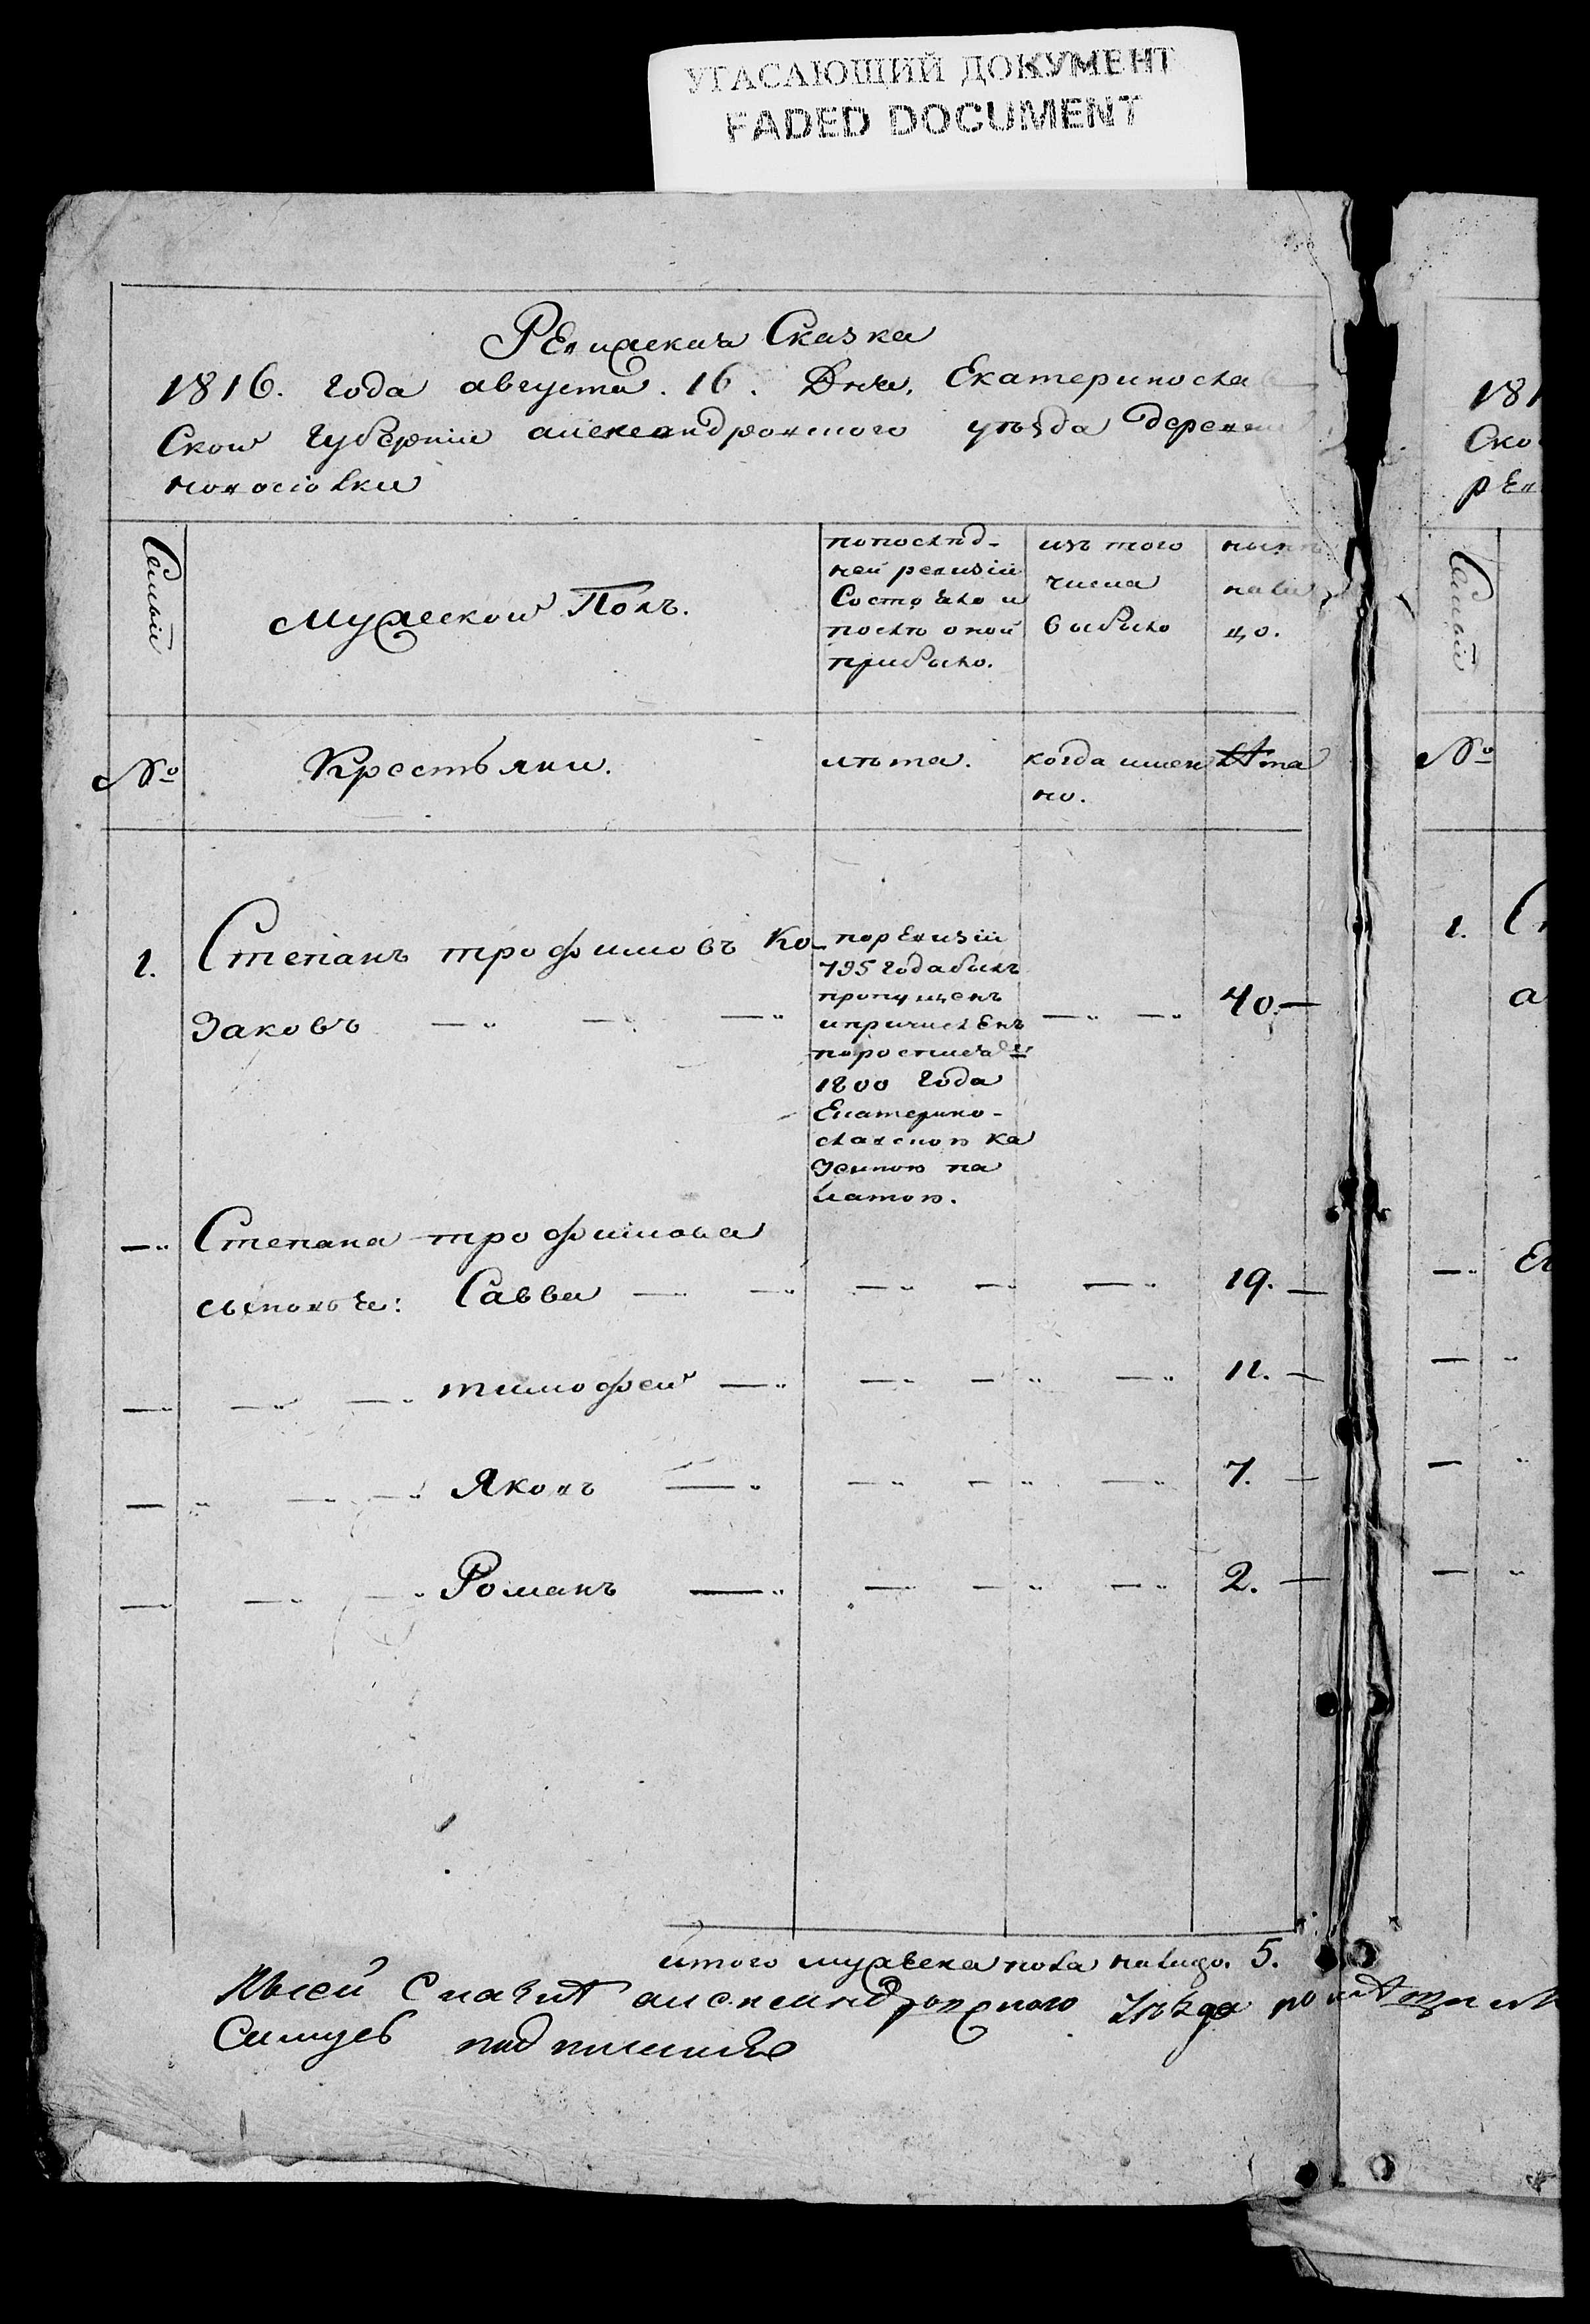 УГАСАЮЩИЙ ДОКУМЕНТ
FADED DOCUMENT
РЕвижская Сказка
1816. года августа. 16. Дня, Екатеринослав
Скои губерніи александровского уѣзда деревни
Семьи
мужескои Полъ.
попослѣд-
ней ревизіи
Состояло и
послѣ оной
прибыло.
изъ того
числа
выбыло
нынѣ
нали
цо.
№
Крестьяни.
лѣта.
когда имен
но.
лѣта
1. Степанъ трофимовъ Ко-
заковъ
поревизіи
795 года былъ
пропущенъ
ипричисленъ
1800 года
Екатерино-
славскою ка
зенною па
латою.
40.
Степана трофимова
сыновья: Савва 19.
тимофеи 11.
Яковъ 7.
Романъ 2.
итого мужеска пола налицо. 5.
александровского
181
Ско
рЕв
Семьи
№
1.